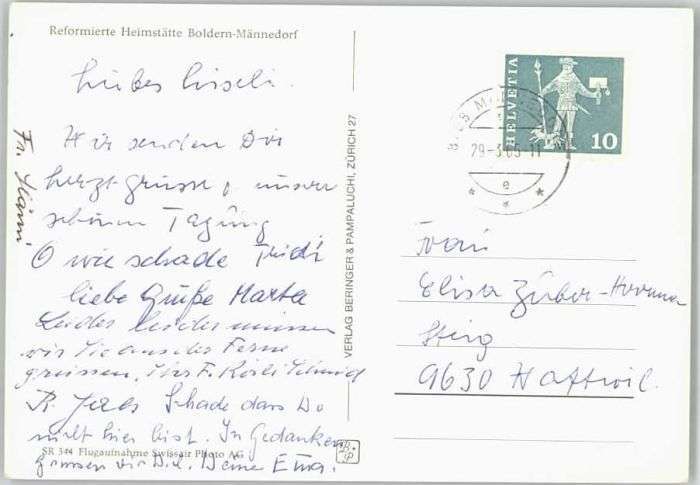 Reformierte Heimstätte Boldern-Männedorf
Liebes Liseli.
Wir senden Dir
herzl. Grüsse v. unserer
schönen Tagung
O wie schade Trudi
liebe Grüße Marta
Leider leider müssen
wir Sie aus der Ferne
grüssen. Ihre F. Rösli Schmid
Schade dass Du
nicht hier bist. In Gedanken
grüssen wir Dich. Deine Erna.
SR 344 Flugaufnahme Swissair Photo AG
VERLAG BERINGER & PAMPALUCHI, ZÜRICH 27
B+P
HELVETIA
10
29-3.65-11
e
Frau
Elisa Züber
Steig
9630 Wattwil.